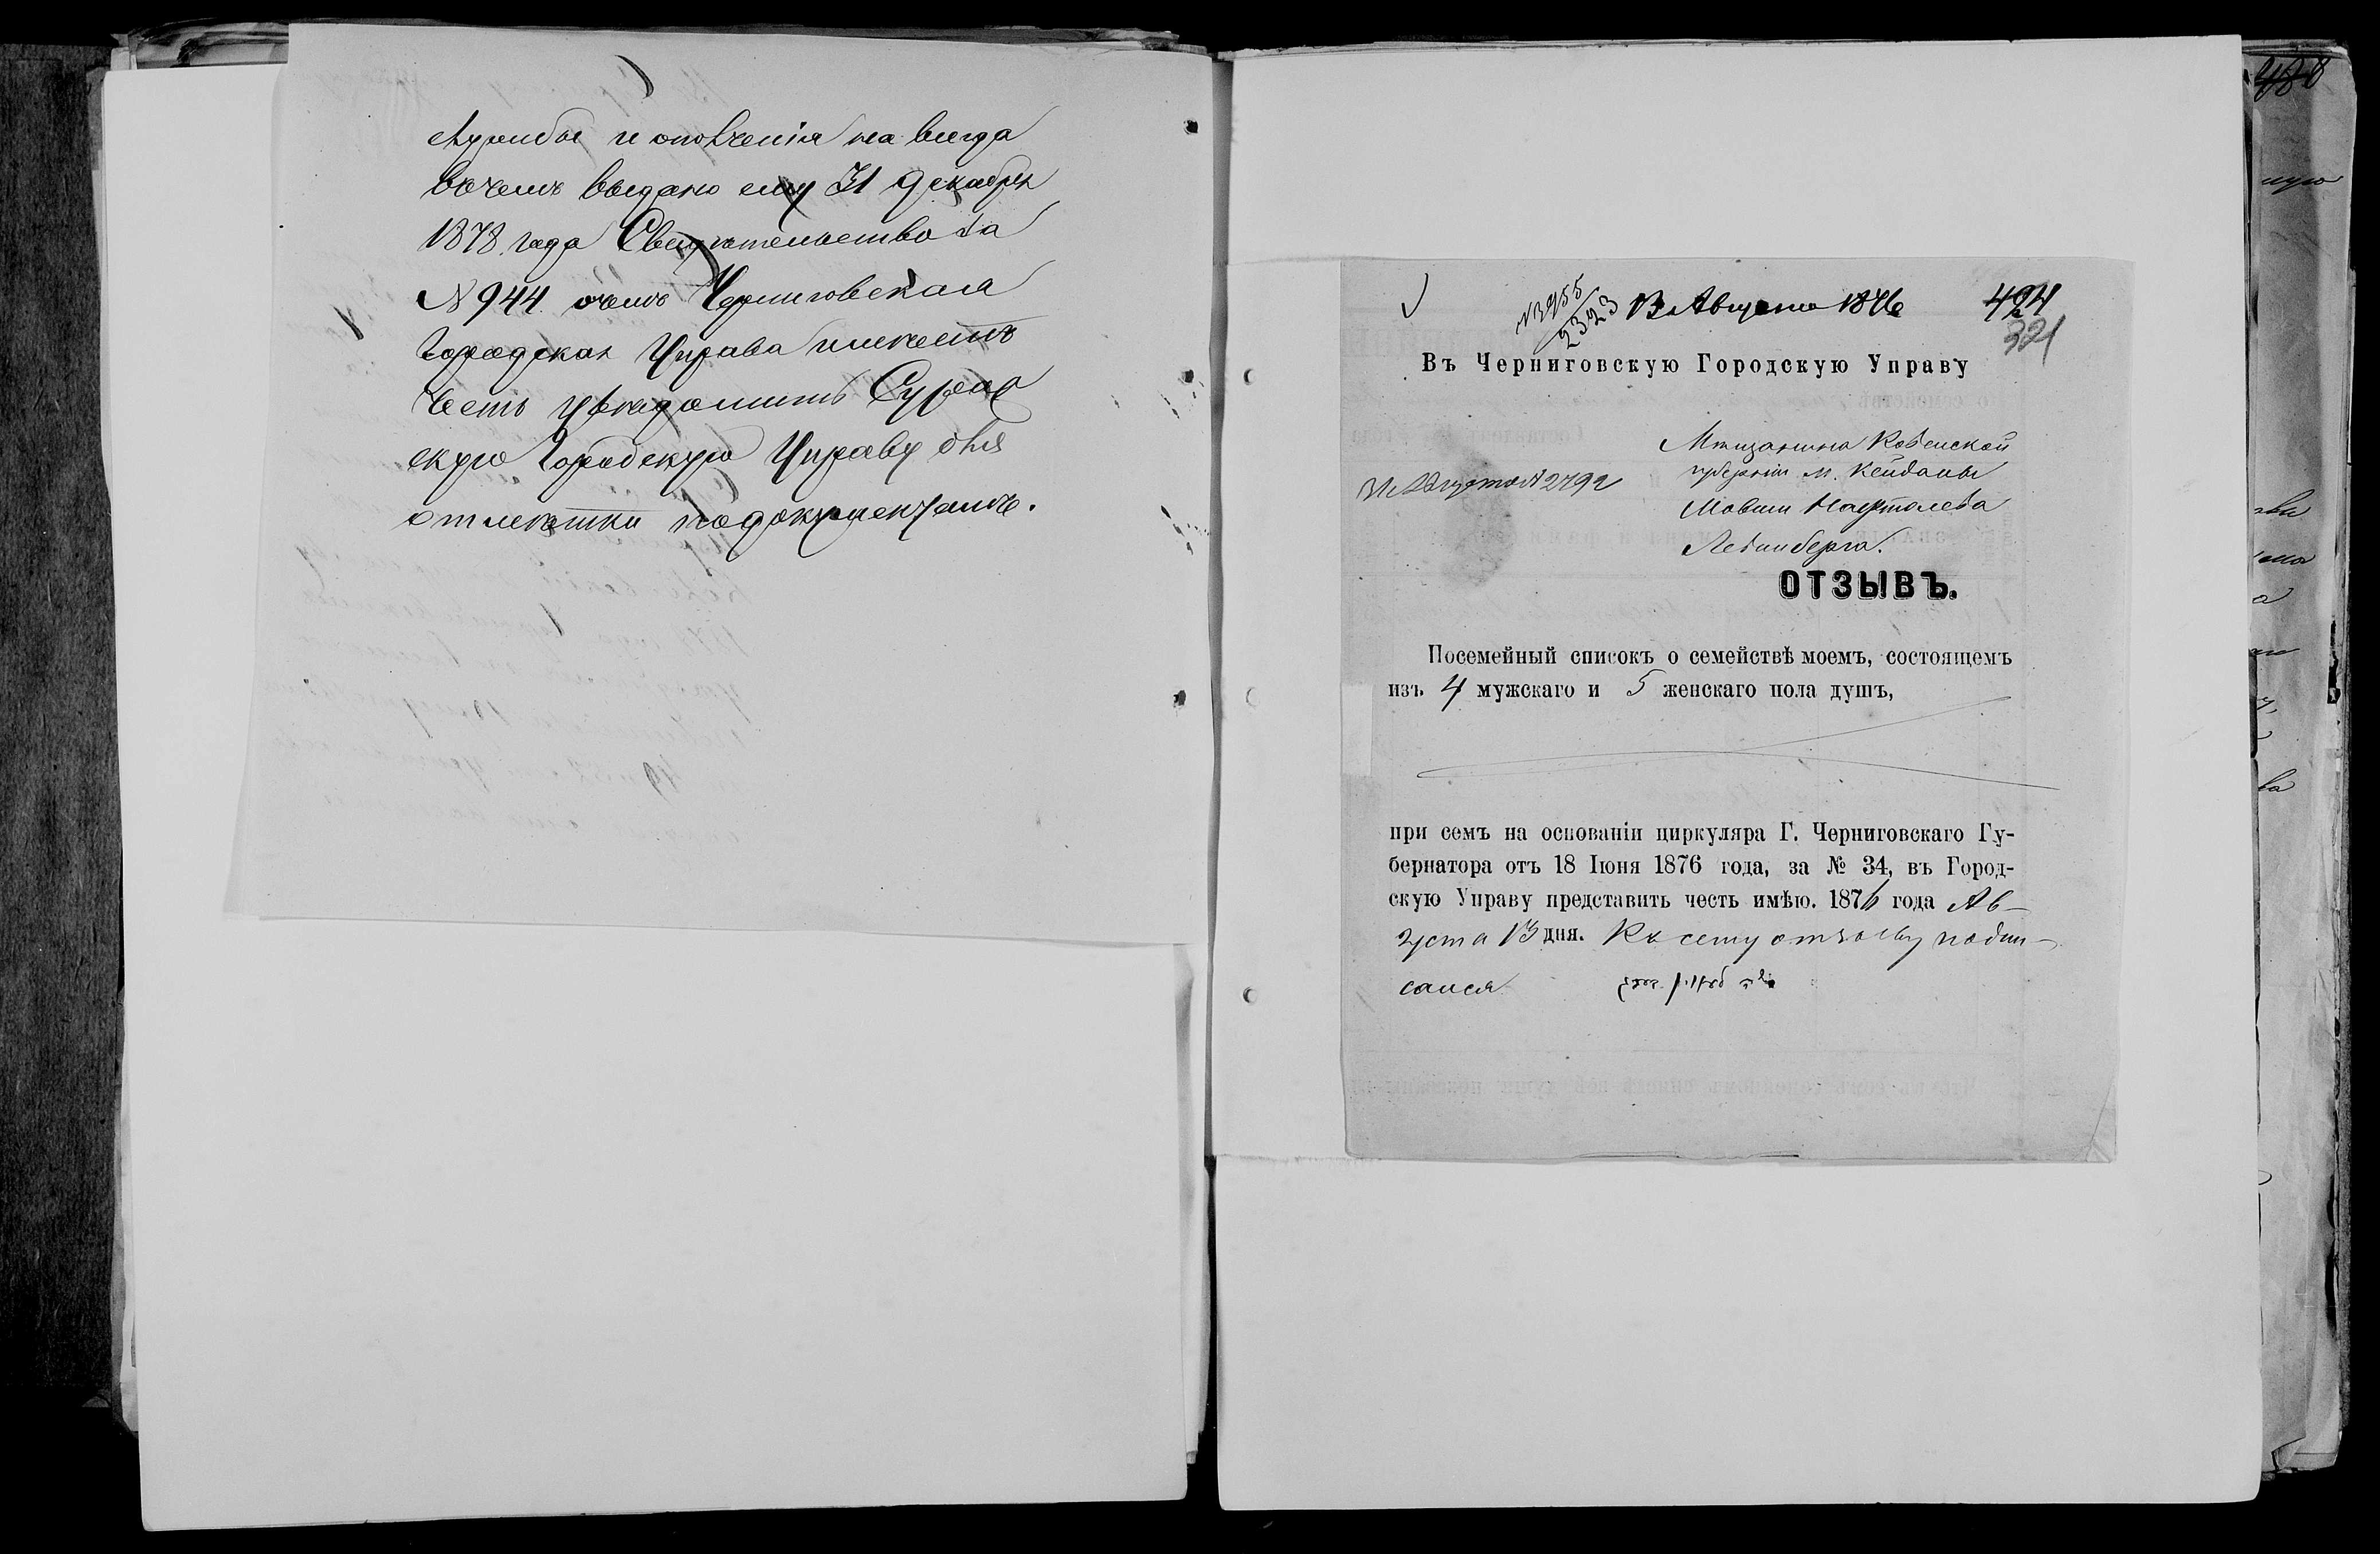 службы и ополченія на всегда
въ чемъ выдано ему 31 Декабря
1878 года Свидѣтельство за
№ 944. о чемъ Черниговская
Городская Управа имѣетъ
честь увѣдомить Сураж
скую Городскую Управу для
отмѣтки по документамъ.
488
N 3955
2323
13 Августа 1876
424
321
Въ Черниговскую Городскую Управу
Мѣщанина Ковенской
губерніи м. Кейданы
Августа № 2792
Мовши Нафтолева
Левинберга.
ОТЗЫВЪ.
Посемейный списокъ о семействѣ моемъ, состоящемъ
изъ 4 мужскаго и 5 женскаго пола душъ,
при семъ на основаніи циркуляра Г. Черниговскаго Гу-
бернатора отъ 18 Іюня 1876 года, за № 34, въ Город-
скую Управу представить честь имѣю. 1876 года Ав-
густа 13 дня. Къ сему отзыву подпи-
сался